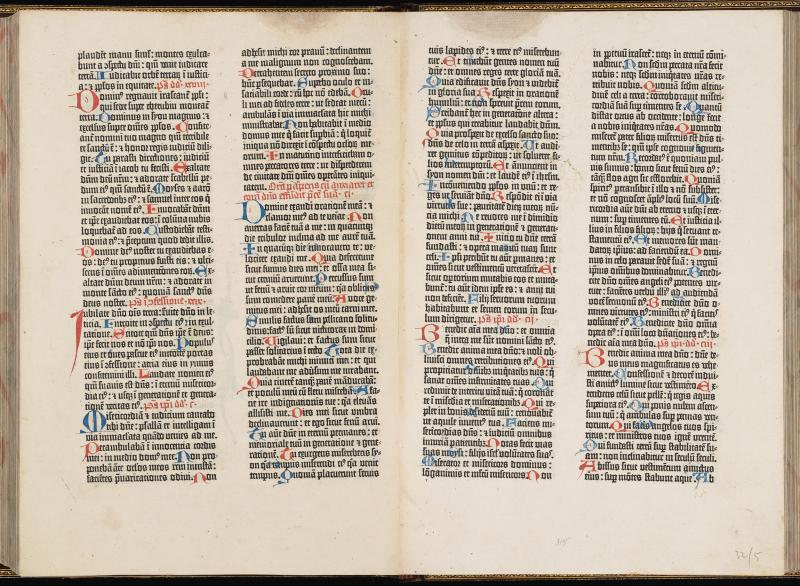 plaudēt manu simul: montes exulta-
bunt a conspectu dñi: quoniā venit iudicare
terrā. Iudicabit orbē terrarū ī iustici-
a: et populos in equitate. ps dd xcviii
Dominus regnavit irascant̄ populi:
qui sedet super cherubin moveat̄
terra. Dominus in syon magnus: et
excelsus super omēs populos. Confite-
ant̄ nomini tuo magno quō terribile
et sanctū ē: et honor regis iudiciū dili-
git. Tu parasti directiones: iudiciū
et iusticiā ī iacob tu fecisti. Exaltate
dñm deū nr̄m: et adorate scabellū pe-
dum eius: quoniā sanctū ē. Moyses et aarō
in sacerdotibus eius: et samuel inter eos qui
invocāt nomē eius. Invocabāt dñm
et ipse exaudiebat eos: ī colūna nubis
loquebat̄ ad eos. Custodiebāt testi-
monia eius: et preceptum quod dedit illis.
Domine deus noster tu exaudiebas e-
os: deus tu propicius fuisti eis: et ulci-
scens ī omēs adinventiones eorū. Ex-
altate dñm deum nostrum: et adorate in
monte sancto eius: quoniā sanctus dñs
deus noster. ps ī confessione xcix
Iubilate deo omnis terra: servite dño in le-
ticia. Introite in conspectu eius: in exul-
tatione. Scitote quoniā dñs ipse ē deus:
ipse fecit nos et nō ipi nos. Populus
eius et oves pascue eius introite portas
eius ī confessione: atria eius in ymnis
confitemini illi. Laudate nomē eius
quoniā suavis est dñs: ī eternū misericor-
dia eius: et usque ī generationē et genera-
tionē veritas eius. ps ipi dd c
Misericordiā et iudicium cantabo
tibi dñe: psallā et intelligam ī
via immaculata quādo venies ad me.
Perambulabā ī innocencia cordis
mei: in medio domus mee. Non pro-
ponebā ante oculos meos rem iniustā:
facientes pṙvaricationes odivi. Non
adhesit michi cor pravum: declinantem
a me malignum non cognoscebam.
Detrahentem secreto proximo suo:
hunc persequebar. Superbo oculo et in-
saciabili corde: cū hoc nō edebā. Ocu-
li mei ad fideles terre: ut sedeāt mecū:
ambulās ī via immaculata hic michi
ministrabat. Non habitabit ī medio
domus mee qui facit supbiā: qui loquit̄
iniqua nō direxit ī conspectu oculorum me-
orum. In matutino interficiebam o-
mnes peccatores terre: ut disperderem
de civitate dñi omēs operātes iniqui-
tatem.
Domine exaudi orationē meā: et
clamor meus ad te veniat. Non
avertas facie tuā a me: in quacūque
die tribulor inclina ad me aurē tuā.
In quacūque die invocavero te: ve-
lociter exaudi me. Quia defecerunt
sicut fumus dies mei: et ossa mea si-
cut cremiū aruerunt. Percussus sum
ut fenū et aruit cor meum: quia oblitus
sum comedere panē meū. A voce ge-
mitus mei: adhesit os meū carni mee.
Similis factus sum pellicano solitu-
dinis: factus sū sicut nicticorax in domi-
cilio. Vigilavi: et factus sum sicut
passer solitarius ī tecto. Tota die ex-
probrabāt michi inimici mei: et qui
laudabant me adūsum me iurabant.
Quia cinerē tanquam panē māducabā:
et poculū meū cū fletu miscebā. A faci-
e ire indignationis tue: quia elevans
allisisti me. Dies mei sicut umbra
declinaverunt: et ego sicut fenū arui.
Tu aut̄ dñe in eternū permanes: et
memoriale tuū in generationē et gene-
rationē. Tu exurgens misereberis sy-
on: quia tempus miserendi eius quia venit
tempus. Quoniā placuerunt servis
tuis lapides eius: et terre eius misereben-
tur. Et timebūt gentes nomen tuū
dñe: et omnes reges terre gloriā tuā.
Quia edificavit dñs syon: et videbit̄
in gloria sua. Respexit in orationē
humiliū: et non sprevit precem eorum.
Scribant̄ hec in generatione altera:
et populus qui creabit̄ laudabit dñm.
Quia prospexit de excelso sancto suo:
dñs de celo in terrā aspexit. Ut audi-
ret gemitus compeditorū: ut solveret fi-
lios interemptorū. Et annūcient in
syon nomen dñi: et laudē eius ī ihrlm.
In conveniendo populos in unū: et re-
ges ut serviāt dño. Respōdit ei ī via
virtutis sue: paucitatē dierū meorū nū-
cia michi. Ne revoces me ī dimidio
dierū meorū: in generationē et generati-
onem anni tui. Initio tu dñe terrā
fundasti: et opera manuū tuarū sunt
celi. Ipsi peribūt tu aut̄ pmanes: et
omēs sicut vestimentū veterascēt. Et
sicut opertorium mutabis eos et muta-
bunt̄: tu aut̄ idem ipse es: et anni tui
non deficiēt. Filij servorum tuorum
habitabunt: et semen eorum in secu-
lum dirigetur. ps ipi dd cii
Benedic aīa mea dño: et omnia
que intra me sūt nomini sācto eius.
Benedic anima mea dño: et noli ob-
livisci omnes retributiones eius. Qui
propiciat̄ omnibus iniquitatibus tuis: qui
sanat omēs infirmitates tuas. Qui
redimit de interitu vitā tuā: qui coronat
te ī misericordia et miserationibus. Qui re-
plet in bonis desideriū tuū: renovabit̄
ut aquile iuventus tua. Faciens mi-
sericordias dñs: et iudiciū omnibus
iniuriā pacientibus. Notas fecit vias
suas moysi: filijs isrl volūtates suas.
Miserator et misericors dominus:
longanimis et multū misericors. Non
in ppetuū irascet̄: neque in eternū cōmi-
nabitur. Non secundum peccata nr̄a fecit
nobis: neque secundum iniquitates nr̄as re-
tribuit nobis. Quoniā secundum altitu-
dinē celi a terra: corroboravit miseri-
cordiā suā sup timentes se. Quantū
distat ortus ab occidente: longe fecit
a nobis iniquitates nr̄as. Quomodo
miseret̄ pater filiorū misertus est dñs ti-
mentibus se: quoniā ipse cognovit figmen-
tum nr̄m. Recordatus ē quoniam pul-
vis sumus: homo sicut fenū dies eius:
tanquam flos agri sic efflorebit. Quoniā
spiritus pertransibit ī illo et nō subsistet:
et nō cognoscet amplius locū suū. Mise-
ricordia aut̄ dñi ab eterno: et usque ī eter-
num: sup timentes eū. Et iusticia il-
lius in filios filiorū: hijs qui servant te-
stamentū eius. Et memores sūt man-
datorū ipsius: ad faciendū ea. Domi-
nus in celo paravit sedē suā: et regnū
ipsius omnibus dominabitur. Benedici-
te dño omēs angeli eius: potentes vir-
tute: facientes verbū illius ad audiendā
vocē sermonū eius. Benedicite dño o-
mnes virtutes eius: ministri eius qui facitis
volūtatē eius. Benedicite dño omnia
opera eius: ī omni loco dnationis eius: be-
nedic aīa mea dño. ps ipi dd ciii
Benedic anima mea dño: dñe de-
us meus magnificatus es vehe-
menter. Confessionē et decorē indui-
sti: amictus lumine sicut vestimēto. Ex-
tendens celū sicut pellē: qui tegis aquis
superiora eius. Qui ponis nubem ascen-
sum tuū: qui ambulas sup pennas ven-
torum. Qui facis angelos tuos spi-
ritus: et ministros tuos ignē urentē.
Qui fundasti terrā sup stabilitatē su-
am: non inclinabit̄ in seculū seculi.
Abissus sicut vestimentum amictus
eius: sup mōtes stabunt aque. Ab
315
32/5